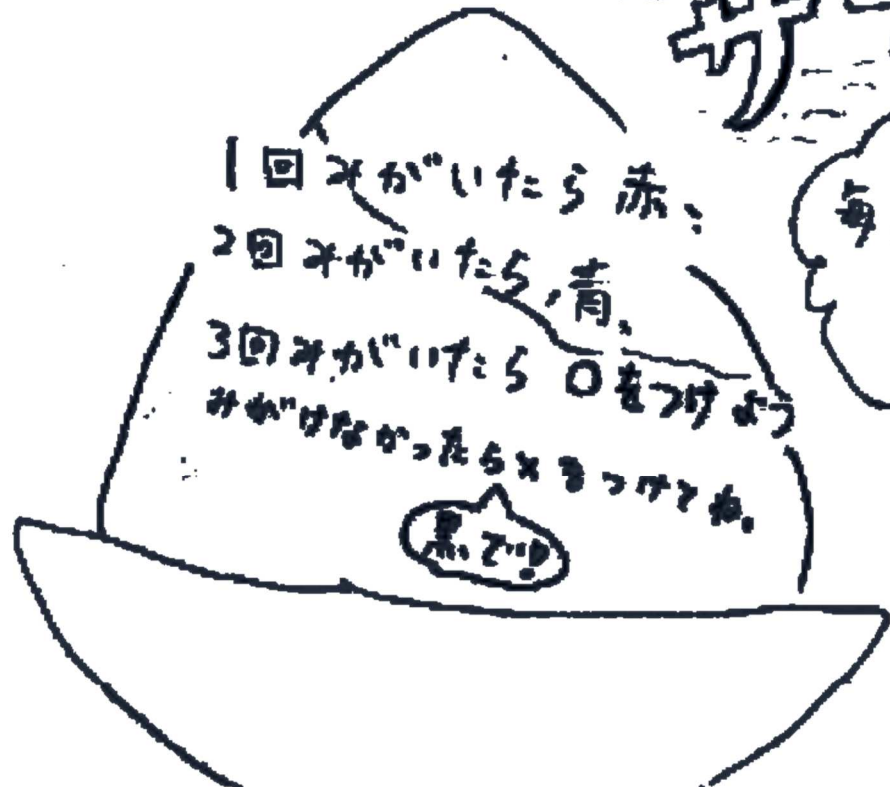 サ
毎
1回みがいたら赤、
2回みがいたら、青、
3回みがいたら〇をつけよう
みがけなかったら×をつけてね。
黒で!!